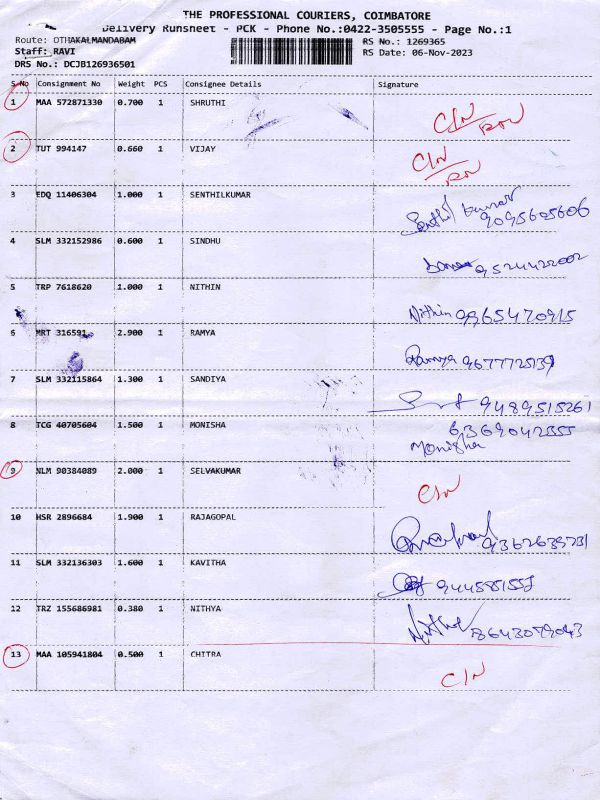 THE PROFESSIONAL COURIERS, COIMBATORE
Delivery Runsheet - PCK - Phone No.:0422-3505555 - Page No.:1
Route: OTHAKALMANDABAM RS No.: 1269365
Staff: RAVI RS Date: 06-Nov-2023
DRS No.: DCJB126936501
S.No Consignment No Weight PCS Consignee Details Signature
1 MAA 572871330 0.700 1 SHRUTHI
2 TUT 994147 0.660 1 VIJAY
3 EDQ 11406304 1.000 1 SENTHILKUMAR Senthil kumar
9095605606
4 SLM 332152986 0.600 1 SINDHU
5 TRP 7618620 1.000 1 NITHIN Nithin 9965470915
6 MRT 316591 2.900 1 RAMYA Ramya
7 SLM 332115864 1.300 1 SANDIYA 9489515261
8 TCG 40705604 1.500 1 MONISHA 6369042355
Monisha
9 NLM 90384089 2.000 1 SELVAKUMAR
10 HSR 2896684 1.900 1 RAJAGOPAL
11 SLM 332136303 1.600 1 KAVITHA
12 TRZ 155686981 0.380 1 NITHYA 8643079043
13 MAA 105941804 0.500 1 CHITRA